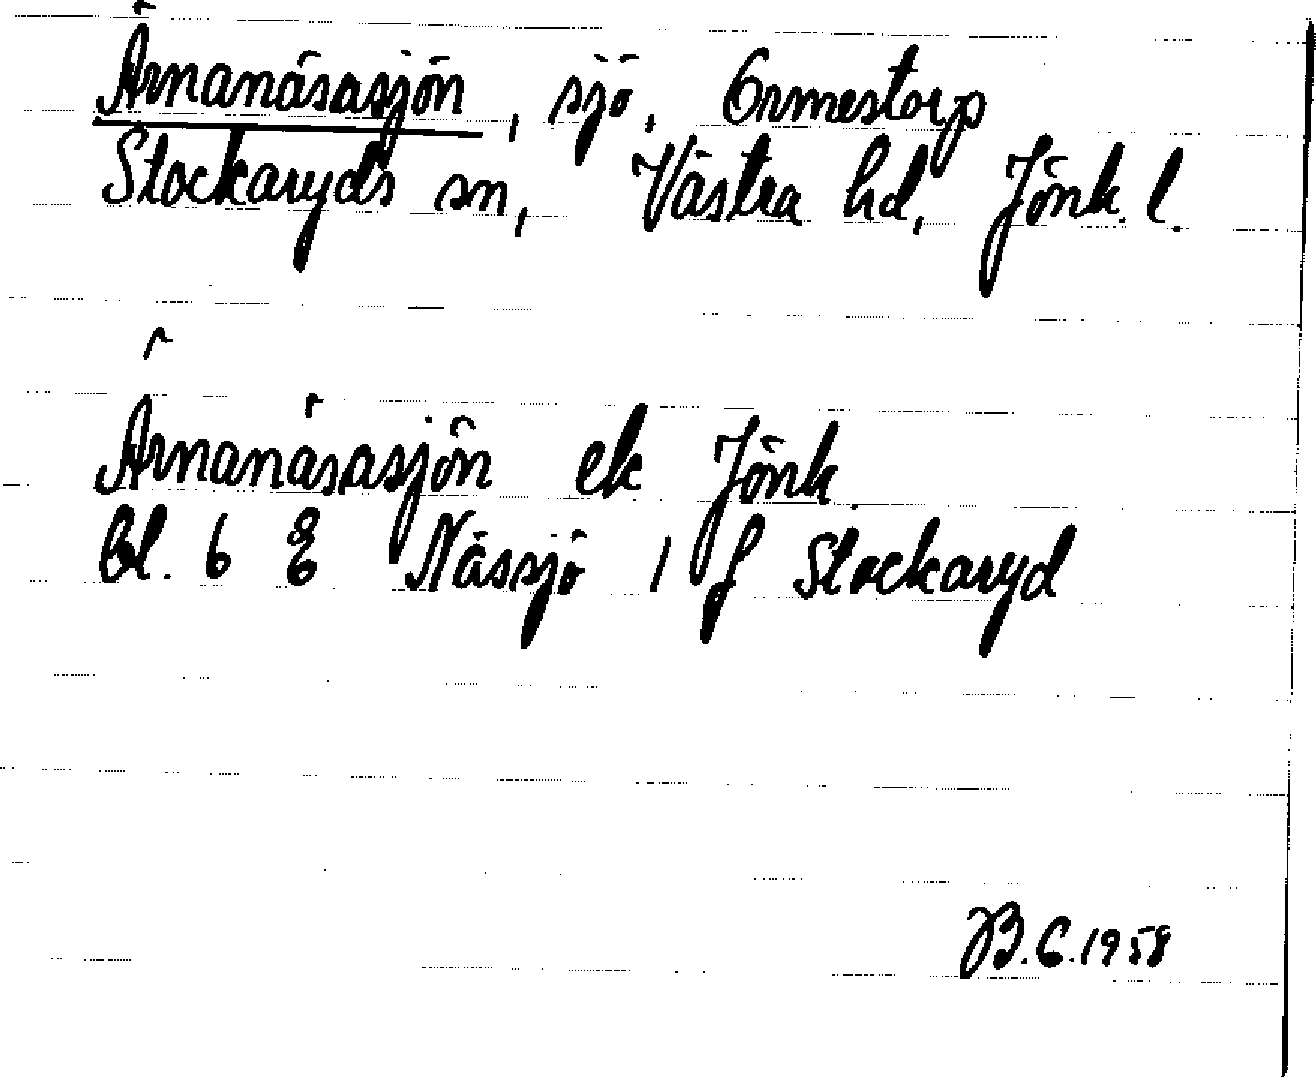 Ärnanäsasjön, sjö, Ormestorp
Stockaryds sn, Västra hd, Jönk. l.
Ärnanäsasjön ek Jönk.
Bl. 6 E Nässjö / f Stockaryd
B.E. 1958